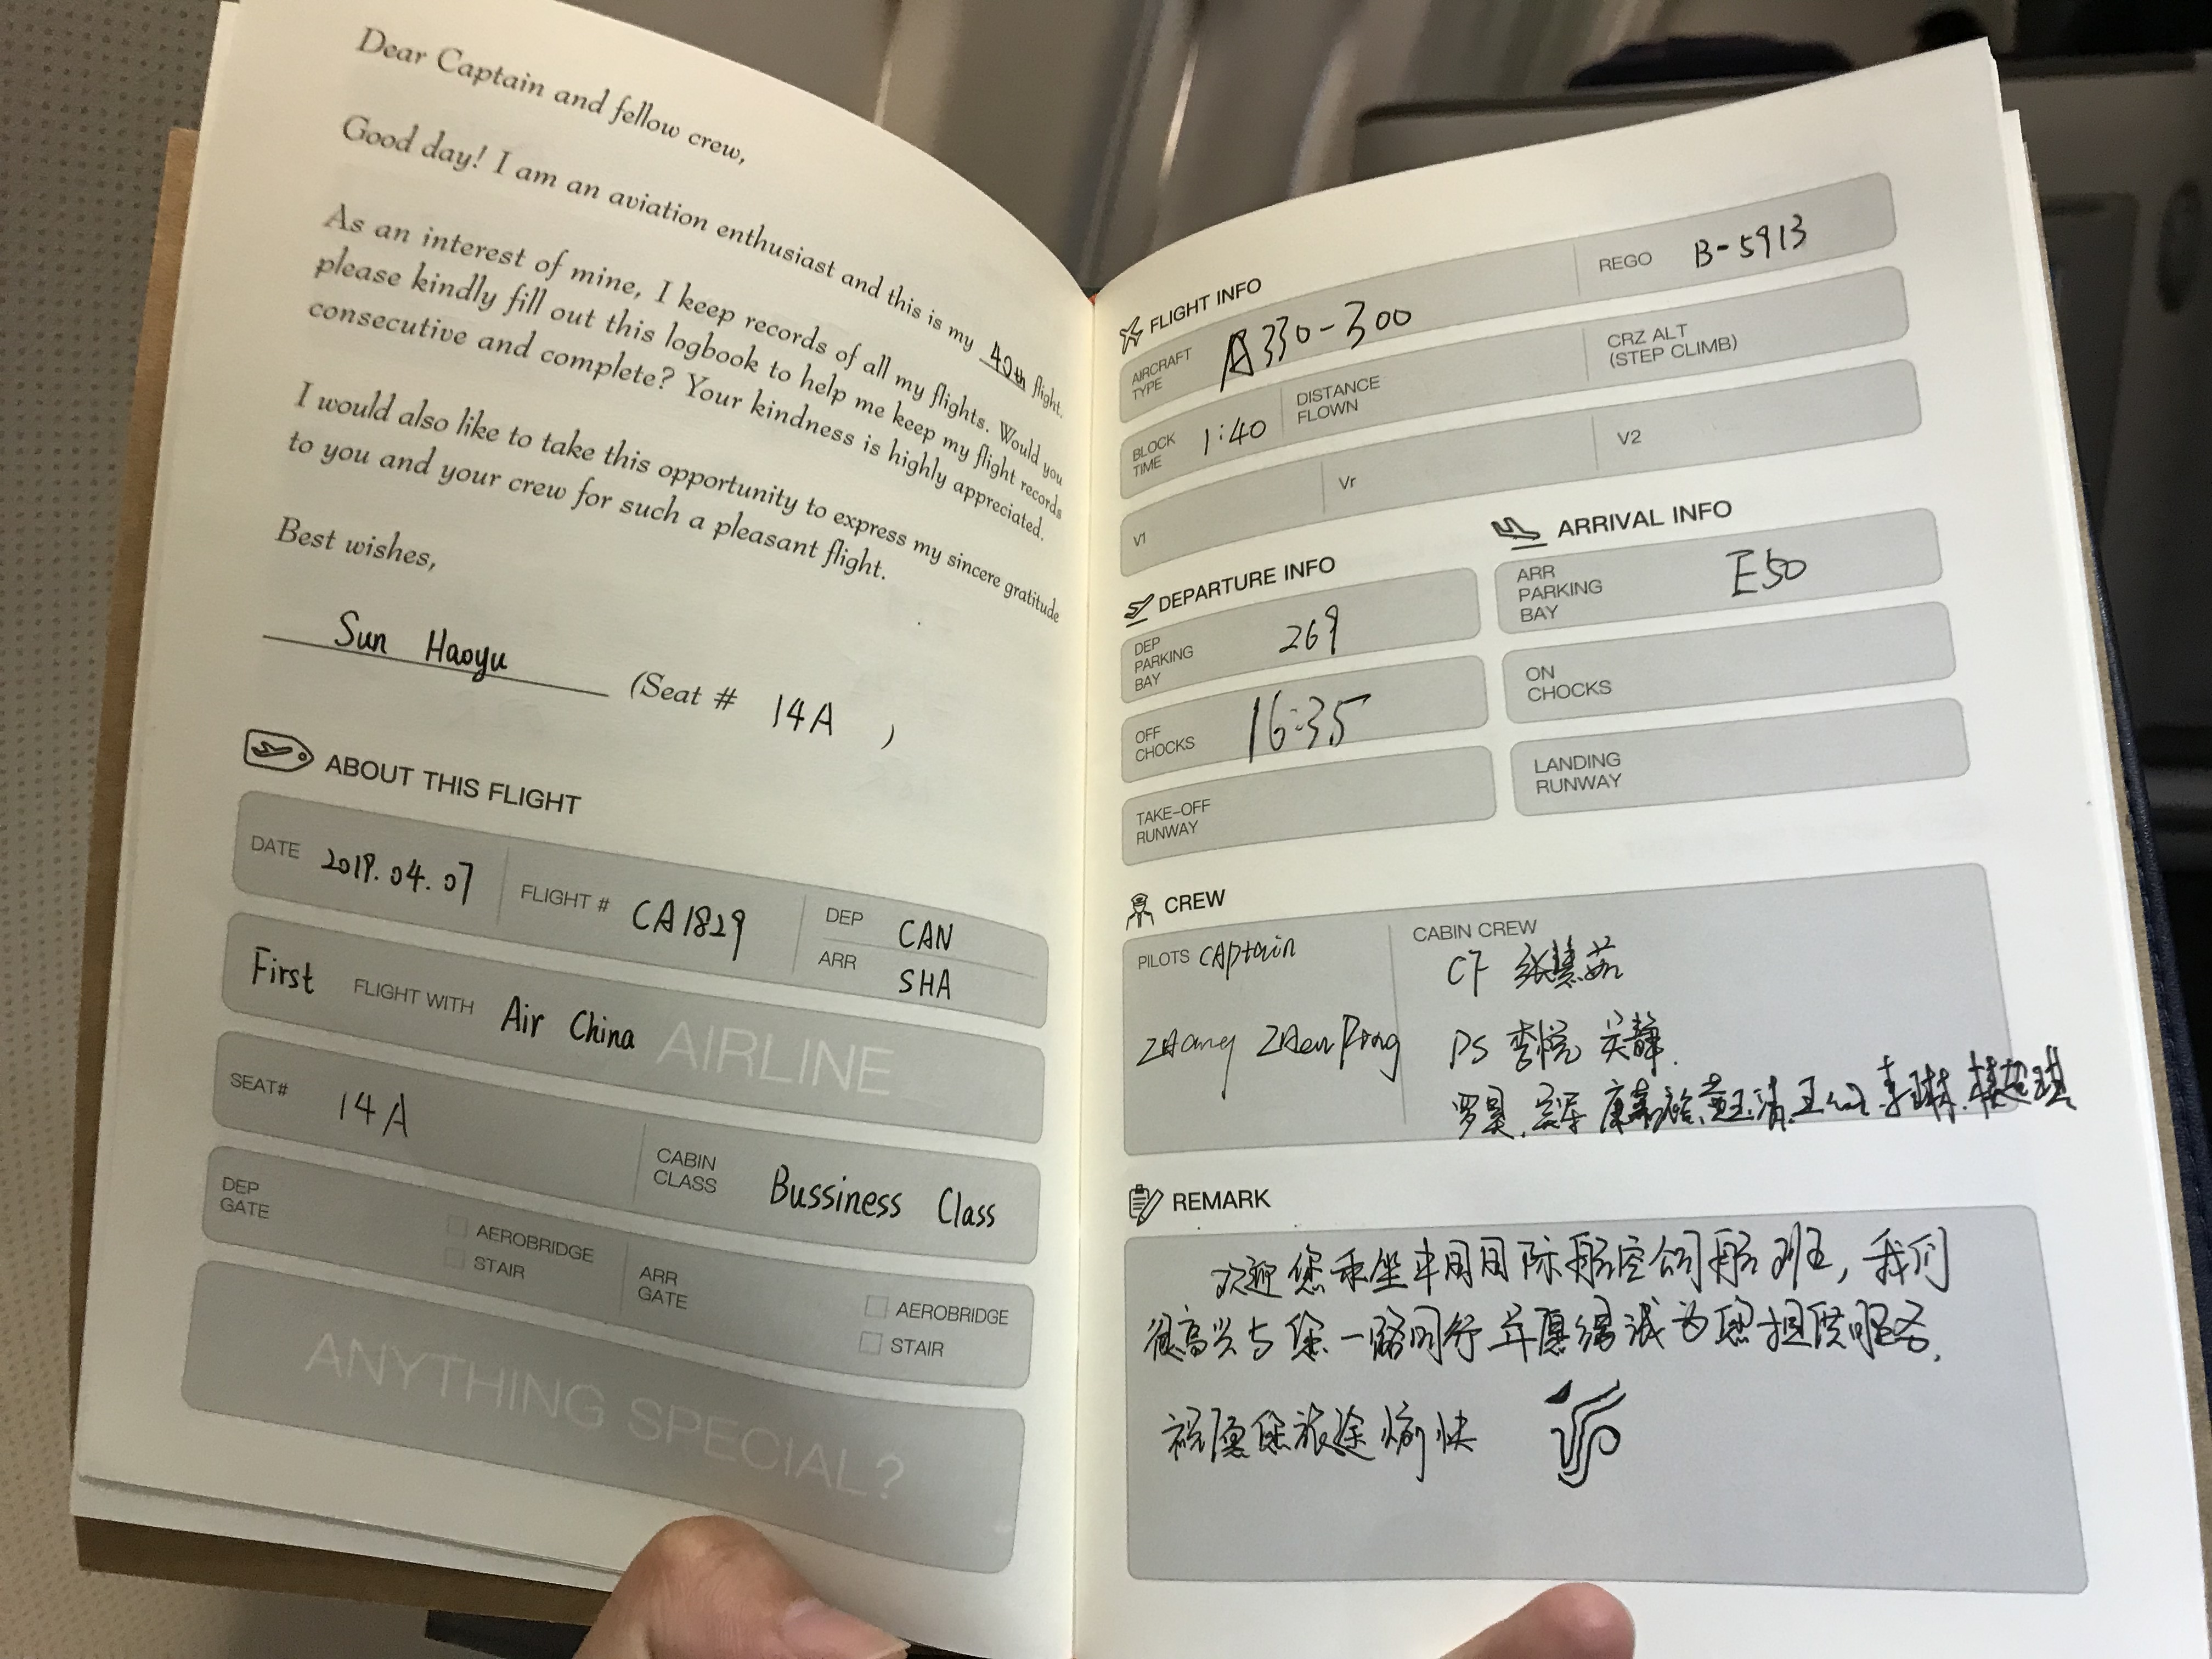 Dear Captain and fellow crew,
Good day! I am an aviation enthusiast and this is my 49th flight.
As an interest of mine, I keep records of all my flights. Would you
please kindly fill out this logbook to help me keep my flight records
consecutive and complete? Your kindness is highly appreciated.
I would also like to take this opportunity to express my sincere gratitude
to you and your crew for such a pleasant flight.
Best wishes,
Sun Haoyu (Seat # 14A )
ABOUT THIS FLIGHT
DATE 2019.04.07 FLIGHT # CA1829 DEP CAN
ARR SHA
First FLIGHT WITH Air China AIRLINE
SEAT# 14A CABIN CLASS Bussiness Class
DEP GATE AEROBRIDGE STAIR ARR GATE AEROBRIDGE STAIR
ANYTHING SPECIAL?
FLIGHT INFO
AIRCRAFT TYPE A330-300 REGO B-5913
BLOCK TIME 1:40 DISTANCE FLOWN CRZ ALT (STEP CLIMB)
V1 Vr V2
DEPARTURE INFO
DEP PARKING BAY 269
OFF CHOCKS 16:35
TAKE-OFF RUNWAY
ARRIVAL INFO
ARR PARKING BAY E50
ON CHOCKS
LANDING RUNWAY
CREW
PILOTS CAptain
ZHang
CABIN CREW
CF 张慧茹
PS 李悦
罗昊
REMARK
欢迎您乘坐中国国际航空公司航班，我们
很高兴与您一路同行并愿竭诚为您提供服务.
祝愿您旅途愉快